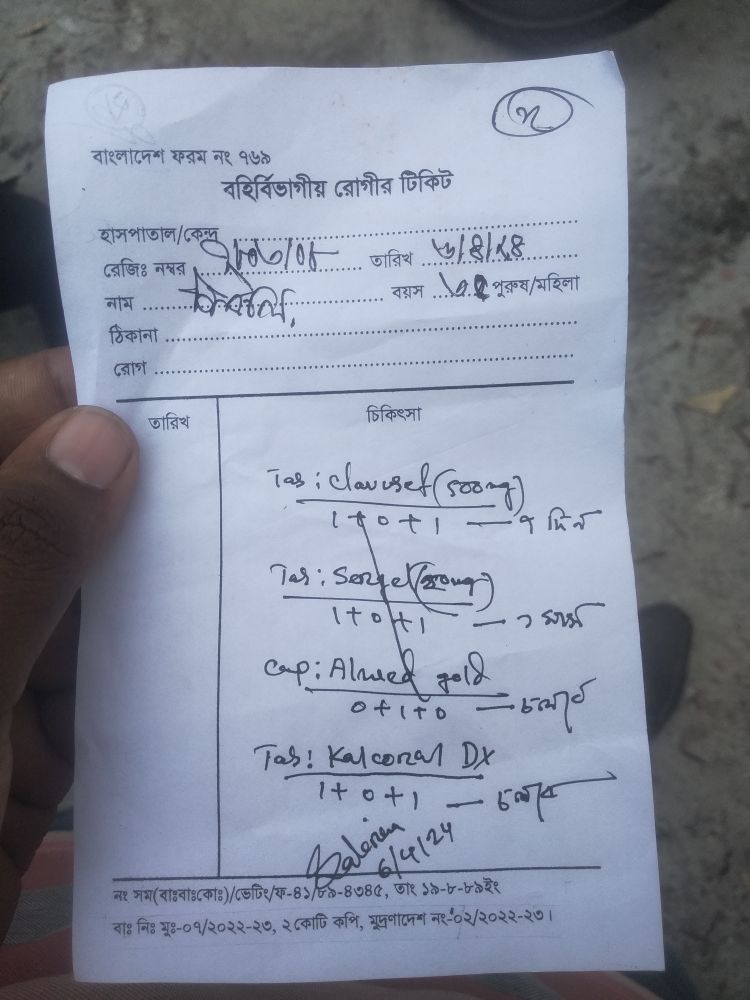 বাংলাদেশ ফরম নং ৭৬৯
বহির্বিভাগীয় রোগীর টিকিট
হাসপাতাল/কেন্দ্র
রেজিঃ নম্বর তারিখ ৬/৪/২৪
নাম বয়স পুরুষ/মহিলা
ঠিকানা
রোগ
তারিখ চিকিৎসা
Tab: Clavuset (500mg)
1 + 0 + 1 — ৭ দিন
Tab: Sergel (20mg)
1 + 0 + 1 — ১ মাস
Cap: gold
0 + 1 + 0 — চলবে
Tab: DX
1 + 0 + 1 — চলবে
6/4/24
নং সম(বাঃবাঃকোঃ)/ভেটিং/ফ-৪১/৮৯-৪৩৪৫, তাং ১৯-৮-৮৯ইং
বাঃ নিঃ মুঃ-০৭/২০২২-২৩, ২ কোটি কপি, মুদ্রণাদেশ নং-০২/২০২২-২৩।